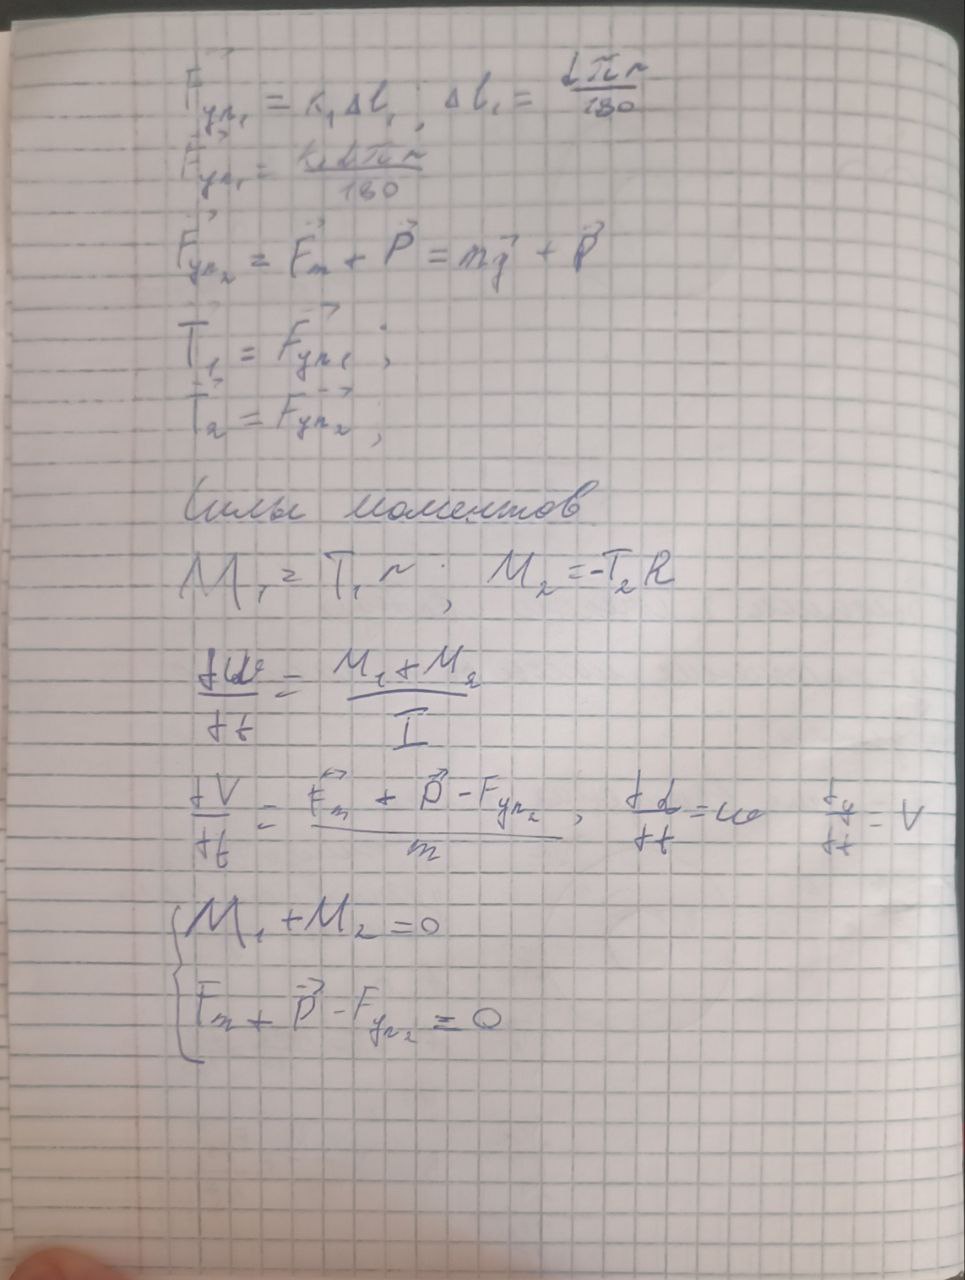 F⃗упр₁ = k₁Δl₁; Δl₁ = απr/180
F⃗упр₁ = k₁απr/180
F⃗упр₂ = F⃗т + P⃗ = mg⃗ + P⃗
T⃗₁ = F⃗упр₁;
T⃗₂ = F⃗упр₂;
Силы моментов
M₁ = T₁r; M₂ = -T₂R
dω/dt = (M₁ + M₂)/I
dV/dt = (F⃗т + P⃗ - Fупр₂)/m, dα/dt = ω dy/dt = V
{ M₁ + M₂ = 0
Fт + P⃗ - Fупр₂ = 0